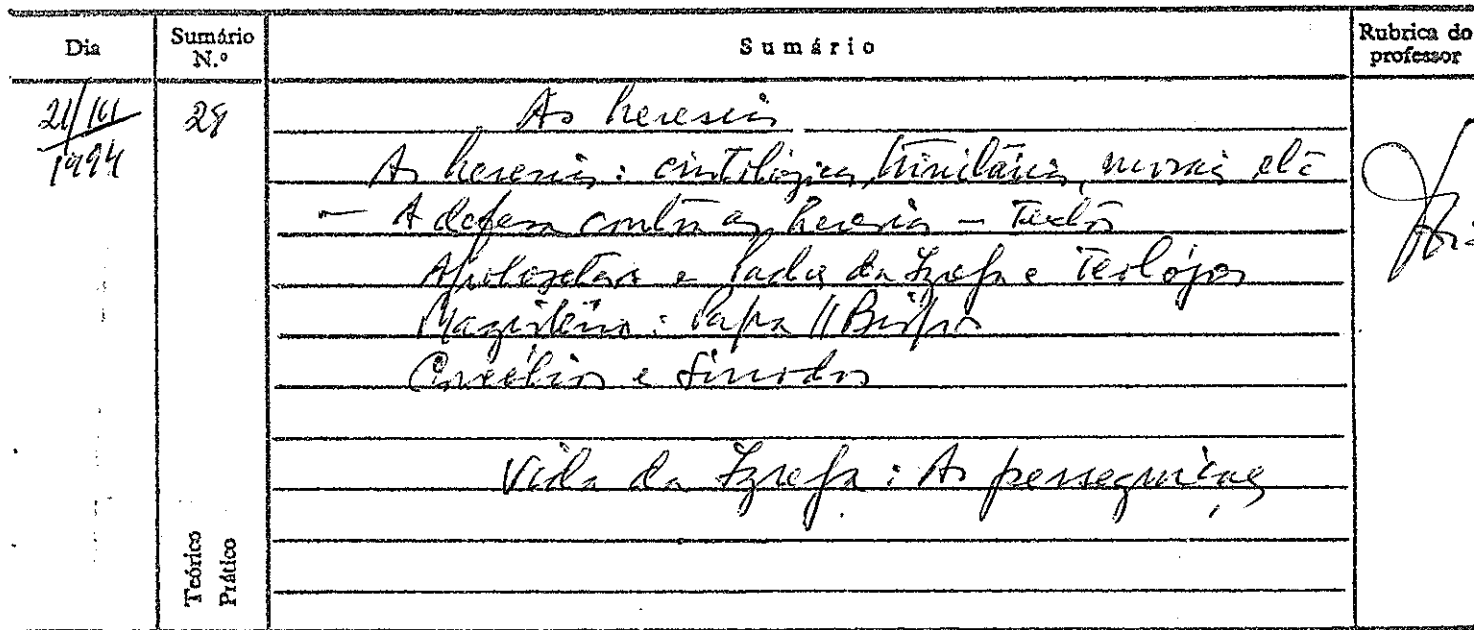 Dia
Sumário N.º
Sumário
Rubrica do professor
21/III/1994
28
As heresias
As heresias: cristológicas, trinitárias, morais, etc
— A defesa contra as heresias — Textos
Apologetas e Padres da Igreja e Teólogos
Magistério: Papa // Bispos
Concílios e Sínodos
Vida da Igreja: As perseguições
Teórico
Prático